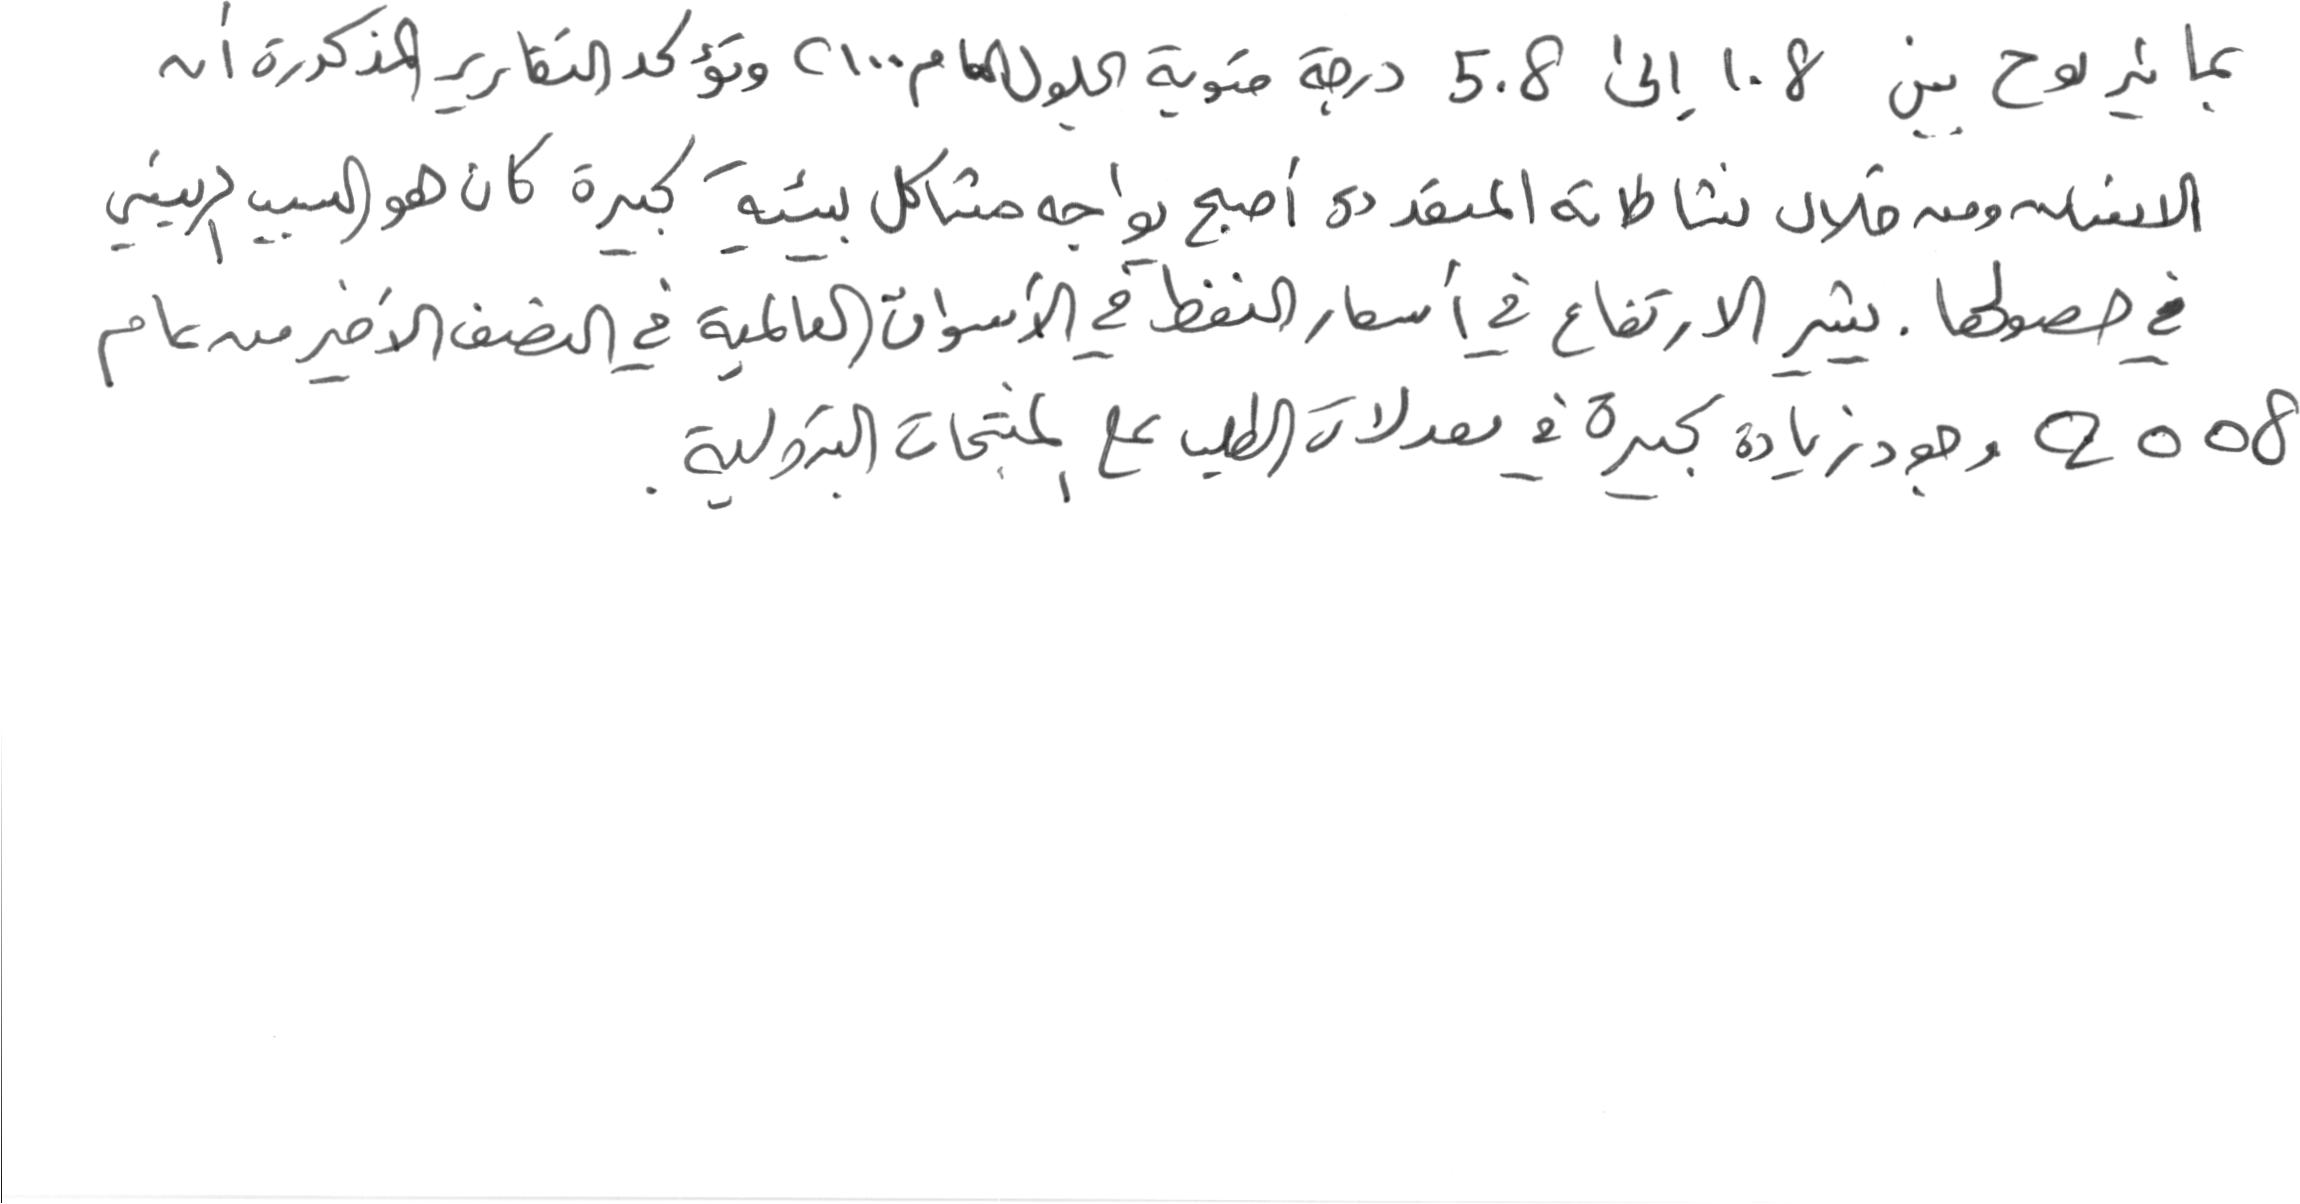 بما يتراوح بين 1.8 إلى 5.8 درجة مئوية بحلول العام 2100 وتؤكد التقارير المذكورة أن
الانسان ومن خلال نشاطاته المتعددة أصبح يواجه مشاكل بيئية كبيرة كان هو السبب الرئيسي
في حصولها. يشير الارتفاع في أسعار النفظ في الأسواق العالمية في النصف الأخير من عام
2008 وجود زيادة كبيرة في معدلات الطلب على المنتجات البترولية.